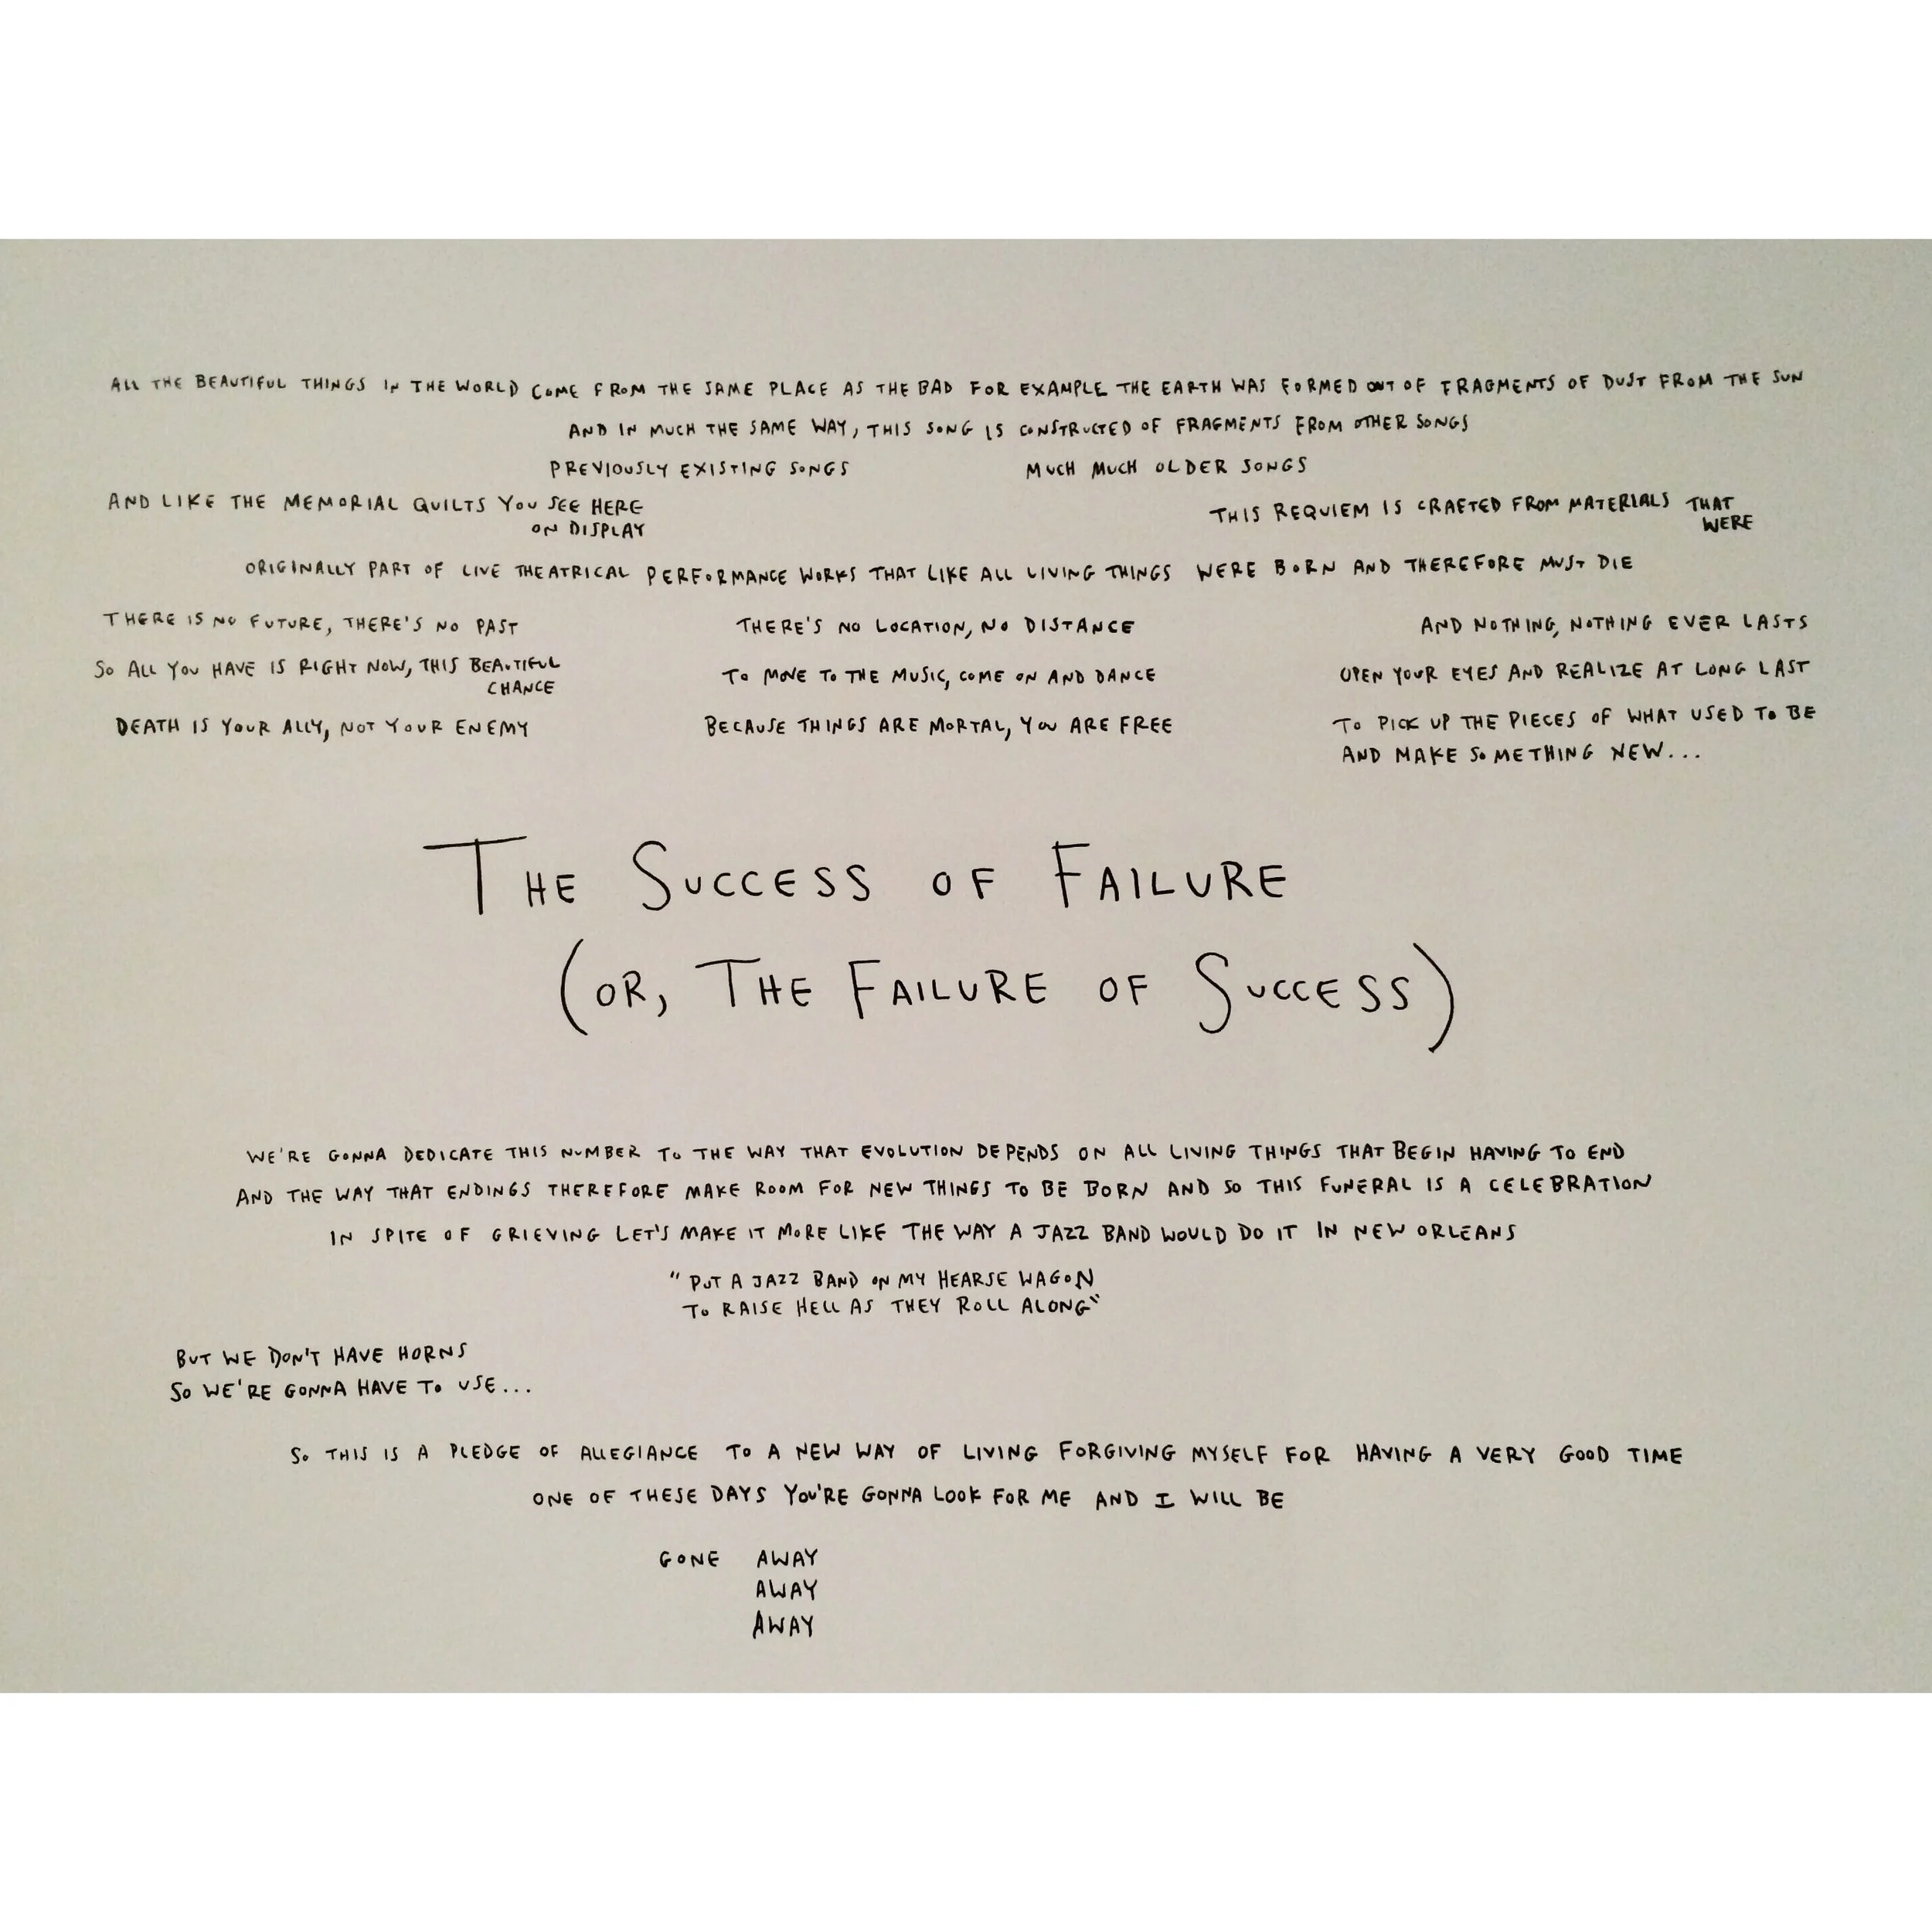 ALL THE BEAUTIFUL THINGS IN THE WORLD COME FROM THE SAME PLACE AS THE BAD FOR EXAMPLE THE EARTH WAS FORMED OUT OF FRAGMENTS OF DUST FROM THE SUN
AND IN MUCH THE SAME WAY, THIS SONG IS CONSTRUCTED OF FRAGMENTS FROM OTHER SONGS
PREVIOUSLY EXISTING SONGS MUCH MUCH OLDER SONGS
AND LIKE THE MEMORIAL QUILTS YOU SEE HERE
ON DISPLAY
THIS REQUIEM IS CRAFTED FROM MATERIALS THAT
WERE
ORIGINALLY PART OF LIVE THEATRICAL PERFORMANCE WORKS THAT LIKE ALL LIVING THINGS WERE BORN AND THEREFORE MUST DIE
THERE IS NO FUTURE, THERE'S NO PAST THERE'S NO LOCATION, NO DISTANCE AND NOTHING, NOTHING EVER LASTS
SO ALL YOU HAVE IS RIGHT NOW, THIS BEAUTIFUL
CHANCE
TO MOVE TO THE MUSIC, COME ON AND DANCE OPEN YOUR EYES AND REALIZE AT LONG LAST
DEATH IS YOUR ALLY, NOT YOUR ENEMY BECAUSE THINGS ARE MORTAL, YOU ARE FREE TO PICK UP THE PIECES OF WHAT USED TO BE
AND MAKE SOMETHING NEW...
THE SUCCESS OF FAILURE
(OR, THE FAILURE OF SUCCESS)
WE'RE GONNA DEDICATE THIS NUMBER TO THE WAY THAT EVOLUTION DEPENDS ON ALL LIVING THINGS THAT BEGIN HAVING TO END
AND THE WAY THAT ENDINGS THEREFORE MAKE ROOM FOR NEW THINGS TO BE BORN AND SO THIS FUNERAL IS A CELEBRATION
IN SPITE OF GRIEVING LET'S MAKE IT MORE LIKE THE WAY A JAZZ BAND WOULD DO IT IN NEW ORLEANS
"PUT A JAZZ BAND ON MY HEARSE WAGON
TO RAISE HELL AS THEY ROLL ALONG"
BUT WE DON'T HAVE HORNS
SO WE'RE GONNA HAVE TO USE...
SO THIS IS A PLEDGE OF ALLEGIANCE TO A NEW WAY OF LIVING FORGIVING MYSELF FOR HAVING A VERY GOOD TIME
ONE OF THESE DAYS YOU'RE GONNA LOOK FOR ME AND I WILL BE
GONE AWAY
AWAY
AWAY